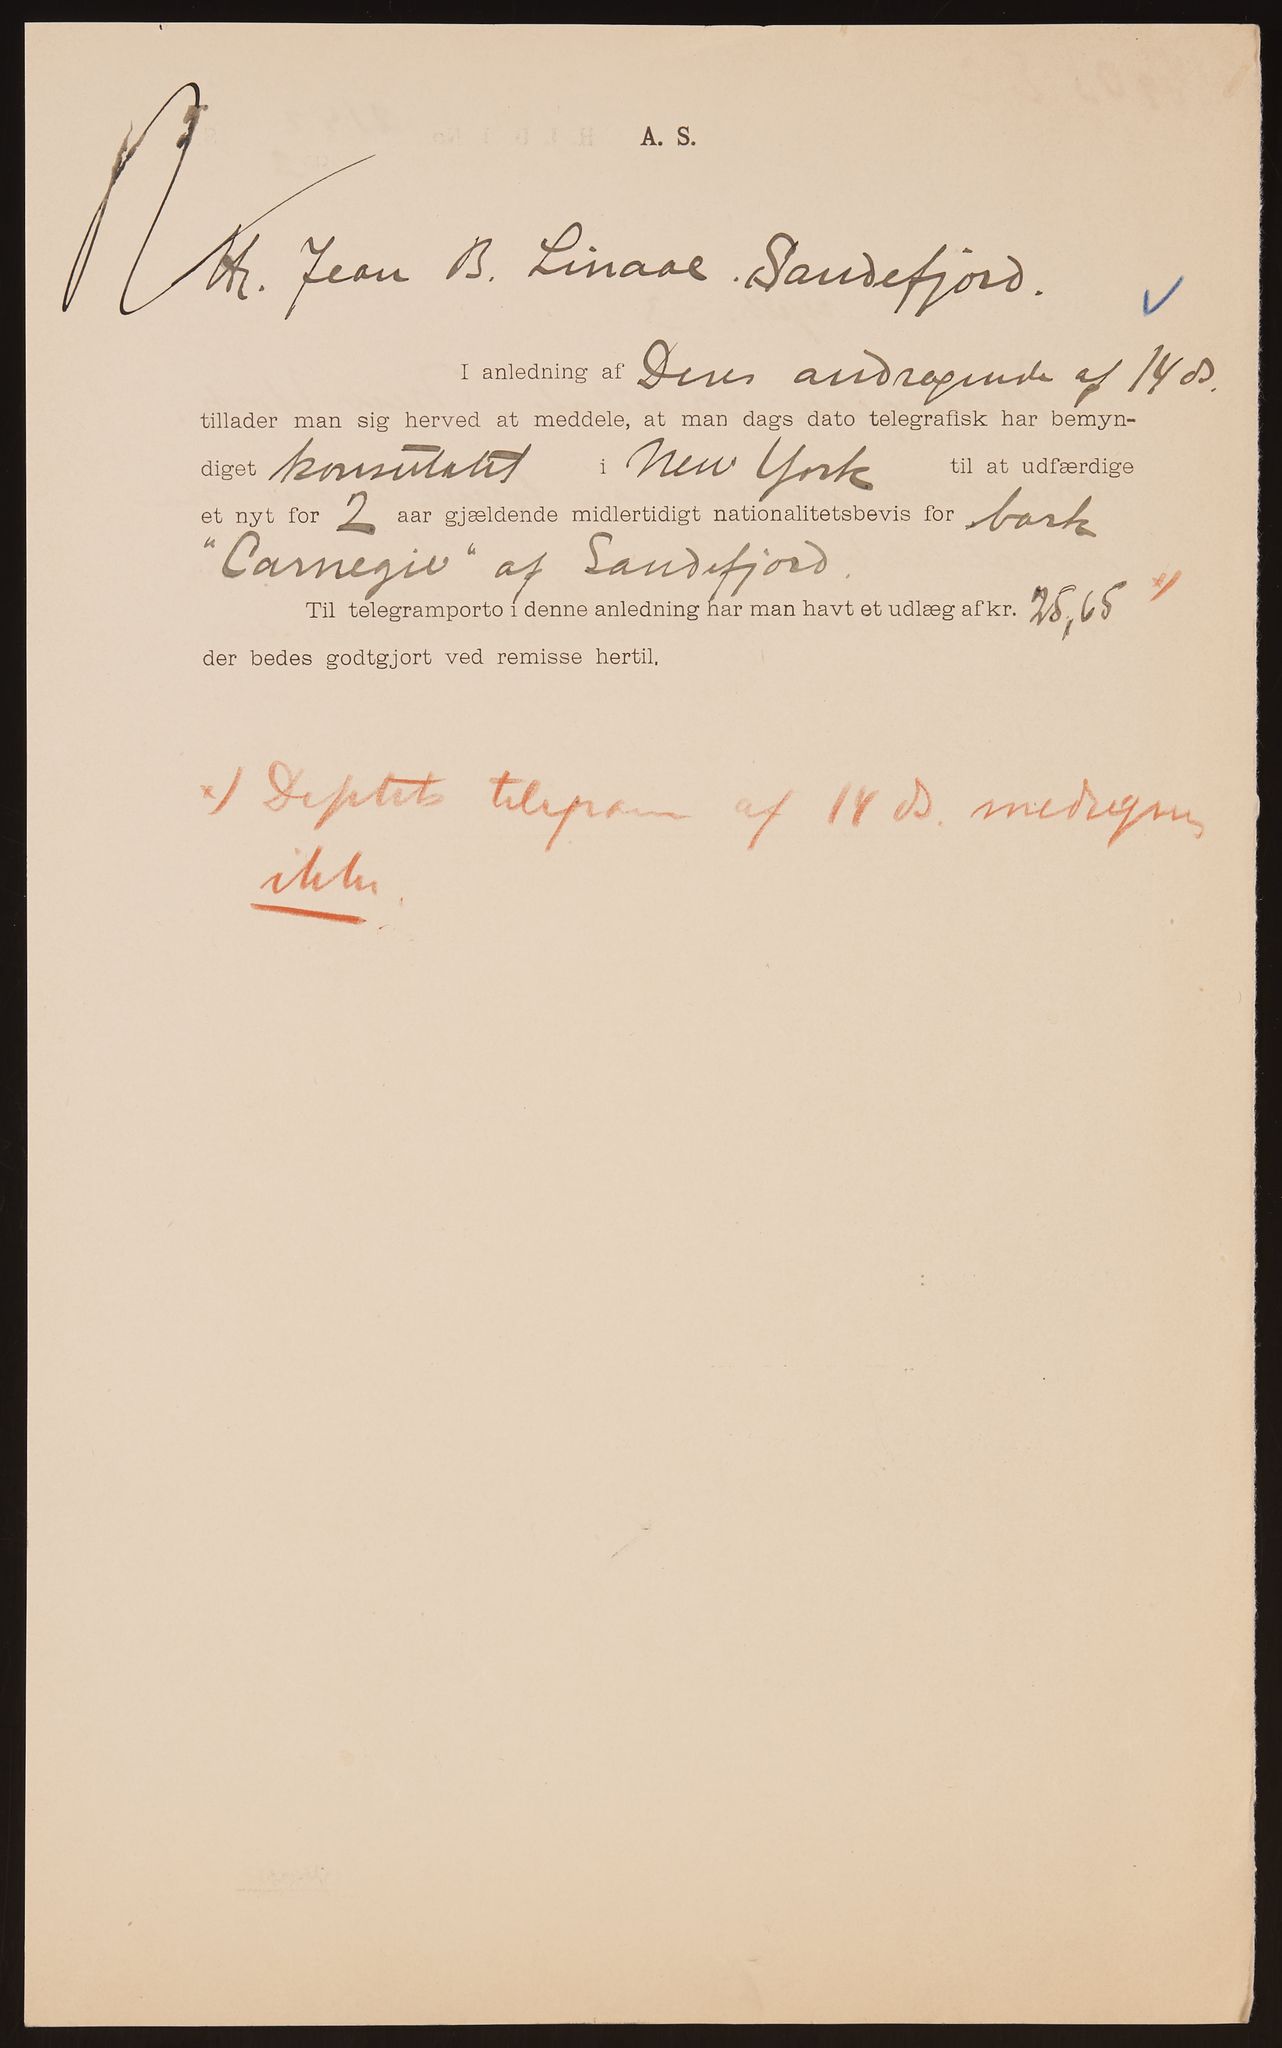 A. S.
Hr. Jean B. Linaae. Sandefjord.
I anledning af Deres andragende af 14 ds.
tillader man sig herved at meddele, at man dags dato telegrafisk har bemyn-
diget konsulatet i New York til at udfærdige
et nyt for 2 aar gjældende midlertidigt nationalitetsbevis for bark
"Carnegie" af Sandefjord.
Til telegramporto i denne anledning har man havt et udlæg af kr. 25,65 x)
der bedes godtgjort ved remisse hertil.
x) Deptets telegram af 14 ds. medregnes
ikke.